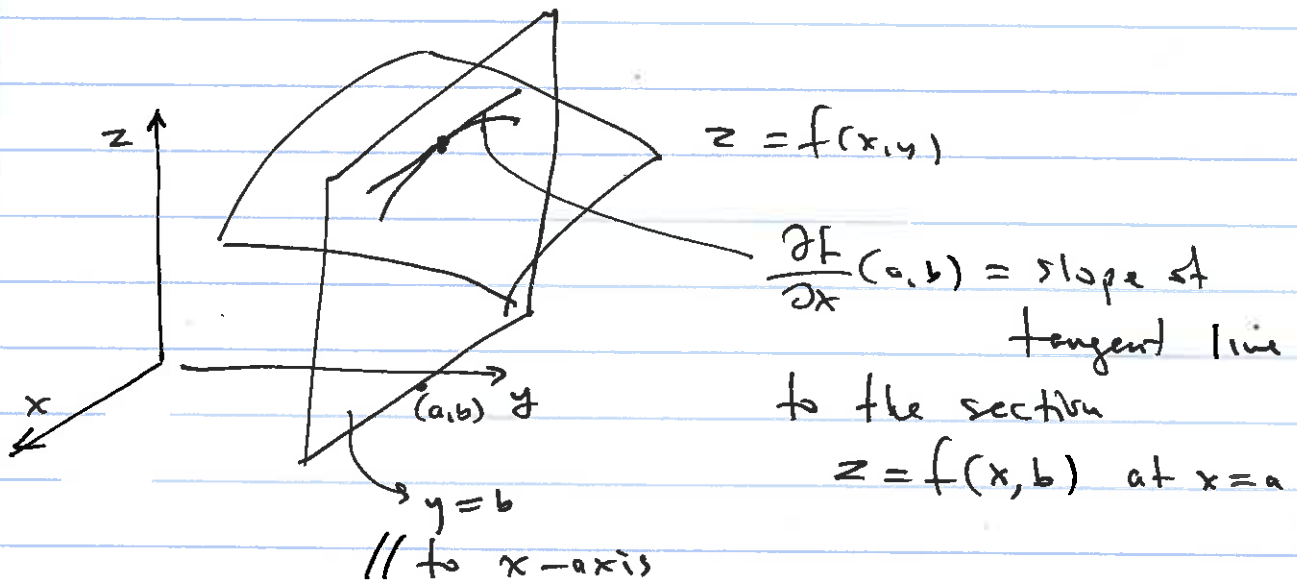 z
z = f(x,y)
∂f/∂x (a,b) = slope of
tangent line
x
(a,b) y
to the section
z = f(x,b) at x = a
y = b
// to x-axis